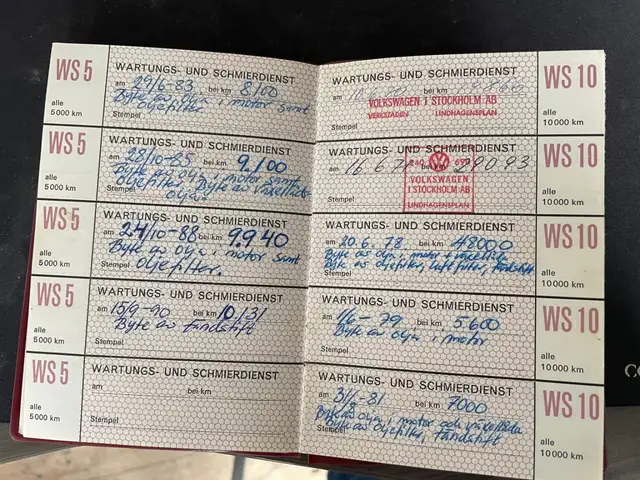 WS 5
alle
5 000 km
WARTUNGS- UND SCHMIERDIENST
am 29/6-83 bei km 8100
Byte av olja i motor samt
oljefilter.
Stempel
WS 5
alle
5 000 km
WARTUNGS- UND SCHMIERDIENST
am 28/10-85 bei km 9100
Byte av olja i motor samt
oljefilter. Byte av växellåds-
olja.
Stempel
WS 5
alle
5 000 km
WARTUNGS- UND SCHMIERDIENST
am 24/10-88 bei km 9.940
Byte av olja i motor samt
Stempel oljefilter.
WS 5
alle
5 000 km
WARTUNGS- UND SCHMIERDIENST
am 15/9-90 bei km 10.131
Byte av tändstift
Stempel
WS 5
alle
5 000 km
WARTUNGS- UND SCHMIERDIENST
am bei km
Stempel
WARTUNGS- UND SCHMIERDIENST
am bei km
VOLKSWAGEN I STOCKHOLM AB
VERKSTADEN LINDHAGENSPLAN
Stempel
WS 10
alle
10 000 km
WARTUNGS- UND SCHMIERDIENST
am 16 6 bei km 29093
VOLKSWAGEN
I STOCKHOLM AB
LINDHAGENSPLAN
Stempel
WS 10
alle
10 000 km
WARTUNGS- UND SCHMIERDIENST
am 20.6.78 bei km 48000
Byte av olja, motor + växellåda
Byte av oljefilter, luftfilter, tändstift
Stempel
WS 10
alle
10 000 km
WARTUNGS- UND SCHMIERDIENST
am 1/6-79 bei km 5600
Byte av olja i motor
Stempel
WS 10
alle
10 000 km
WARTUNGS- UND SCHMIERDIENST
am bei km 7000
Byte av olja i motor och växellåda
Byte av oljefilter, tändstift
Stempel
WS 10
alle
10 000 km